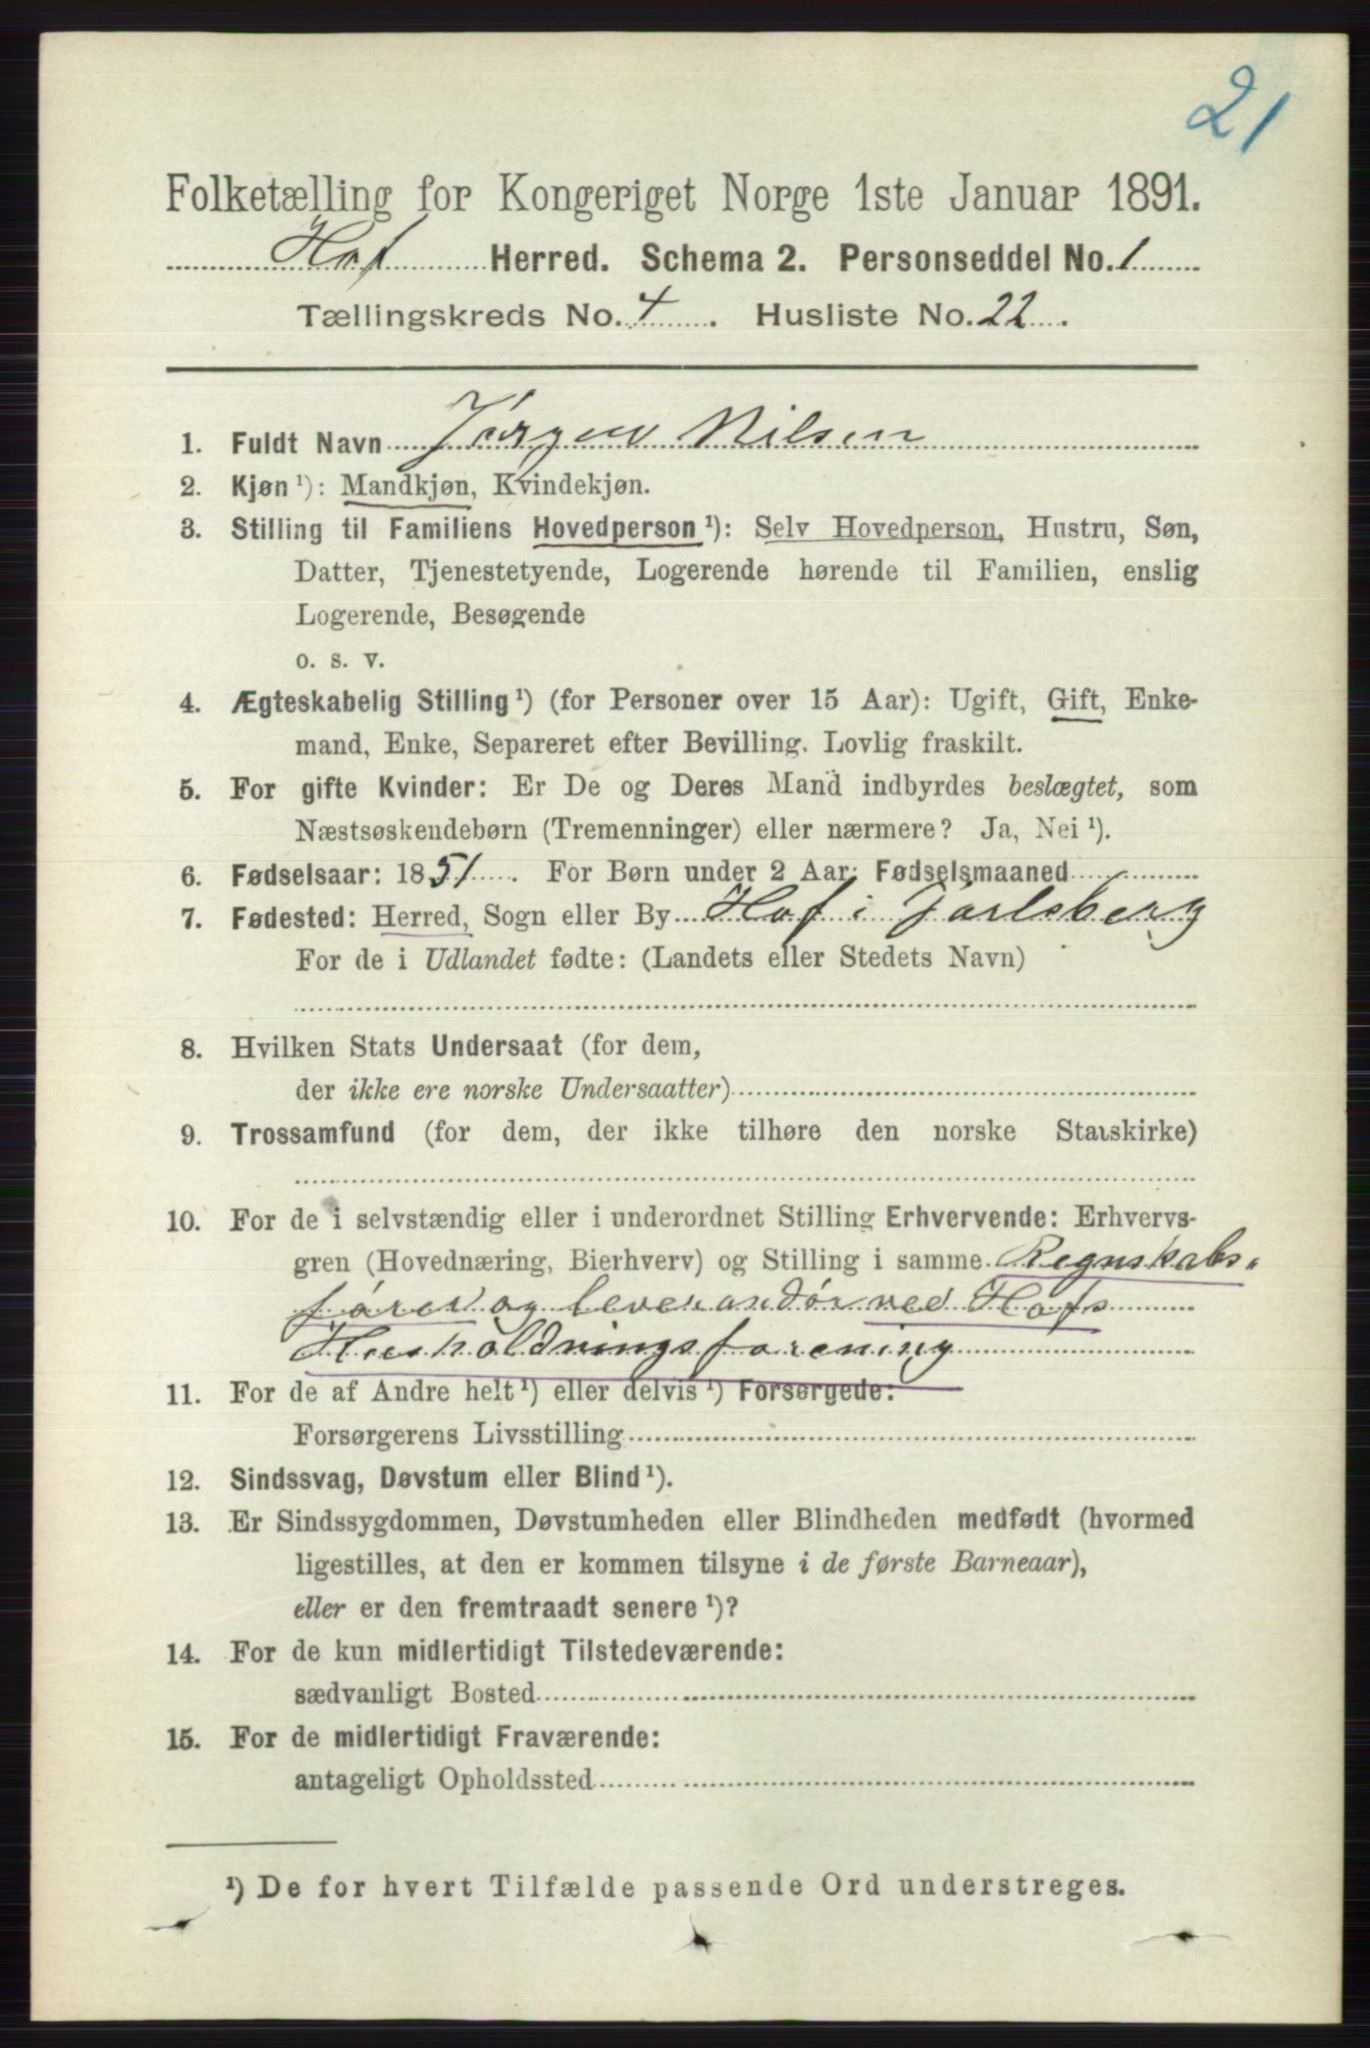 21
Folketælling for Kongeriget Norge 1ste Januar 1891.
Hof Herred. Schema 2. Personseddel No. 1
Tællingskreds No. 4. Husliste No. 22.
1. Fuldt Navn Jørgen Nilsen
2. Kjøn ¹): Mandkjøn, Kvindekjøn.
3. Stilling til Familiens Hovedperson ¹): Selv Hovedperson, Hustru, Søn,
Datter, Tjenestetyende, Logerende hørende til Familien, enslig
Logerende, Besøgende
o. s. v.
4. Ægteskabelig Stilling ¹) (for Personer over 15 Aar): Ugift, Gift, Enke-
mand, Enke, Separeret efter Bevilling. Lovlig fraskilt.
5. For gifte Kvinder: Er De og Deres Mand indbyrdes beslægtet, som
Næstsøskendebørn (Tremenninger) eller nærmere? Ja, Nei ¹).
6. Fødselsaar: 1851. For Børn under 2 Aar: Fødselsmaaned
7. Fødested: Herred, Sogn eller By Hof i Jarlsberg
For de i Udlandet fødte: (Landets eller Stedets Navn)
8. Hvilken Stats Undersaat (for dem,
der ikke ere norske Undersaatter)
9. Trossamfund (for dem, der ikke tilhøre den norske Statskirke)
10. For de i selvstændig eller i underordnet Stilling Erhvervende: Erhvervs-
gren (Hovednæring, Bierhverv) og Stilling i samme. Regnskabs-
fører og leverandør ved Hofs
Husholdningsforening
11. For de af Andre helt ¹) eller delvis ¹) Forsørgede:
Forsørgerens Livsstilling
12. Sindssvag, Døvstum eller Blind ¹).
13. Er Sindssygdommen, Døvstumheden eller Blindheden medfødt (hvormed
ligestilles, at den er kommen tilsyne i de første Barneaar),
eller er den fremtraadt senere ¹)?
14. For de kun midlertidigt Tilstedeværende:
sædvanligt Bosted
15. For de midlertidigt Fraværende:
antageligt Opholdssted
¹) De for hvert Tilfælde passende Ord understreges.